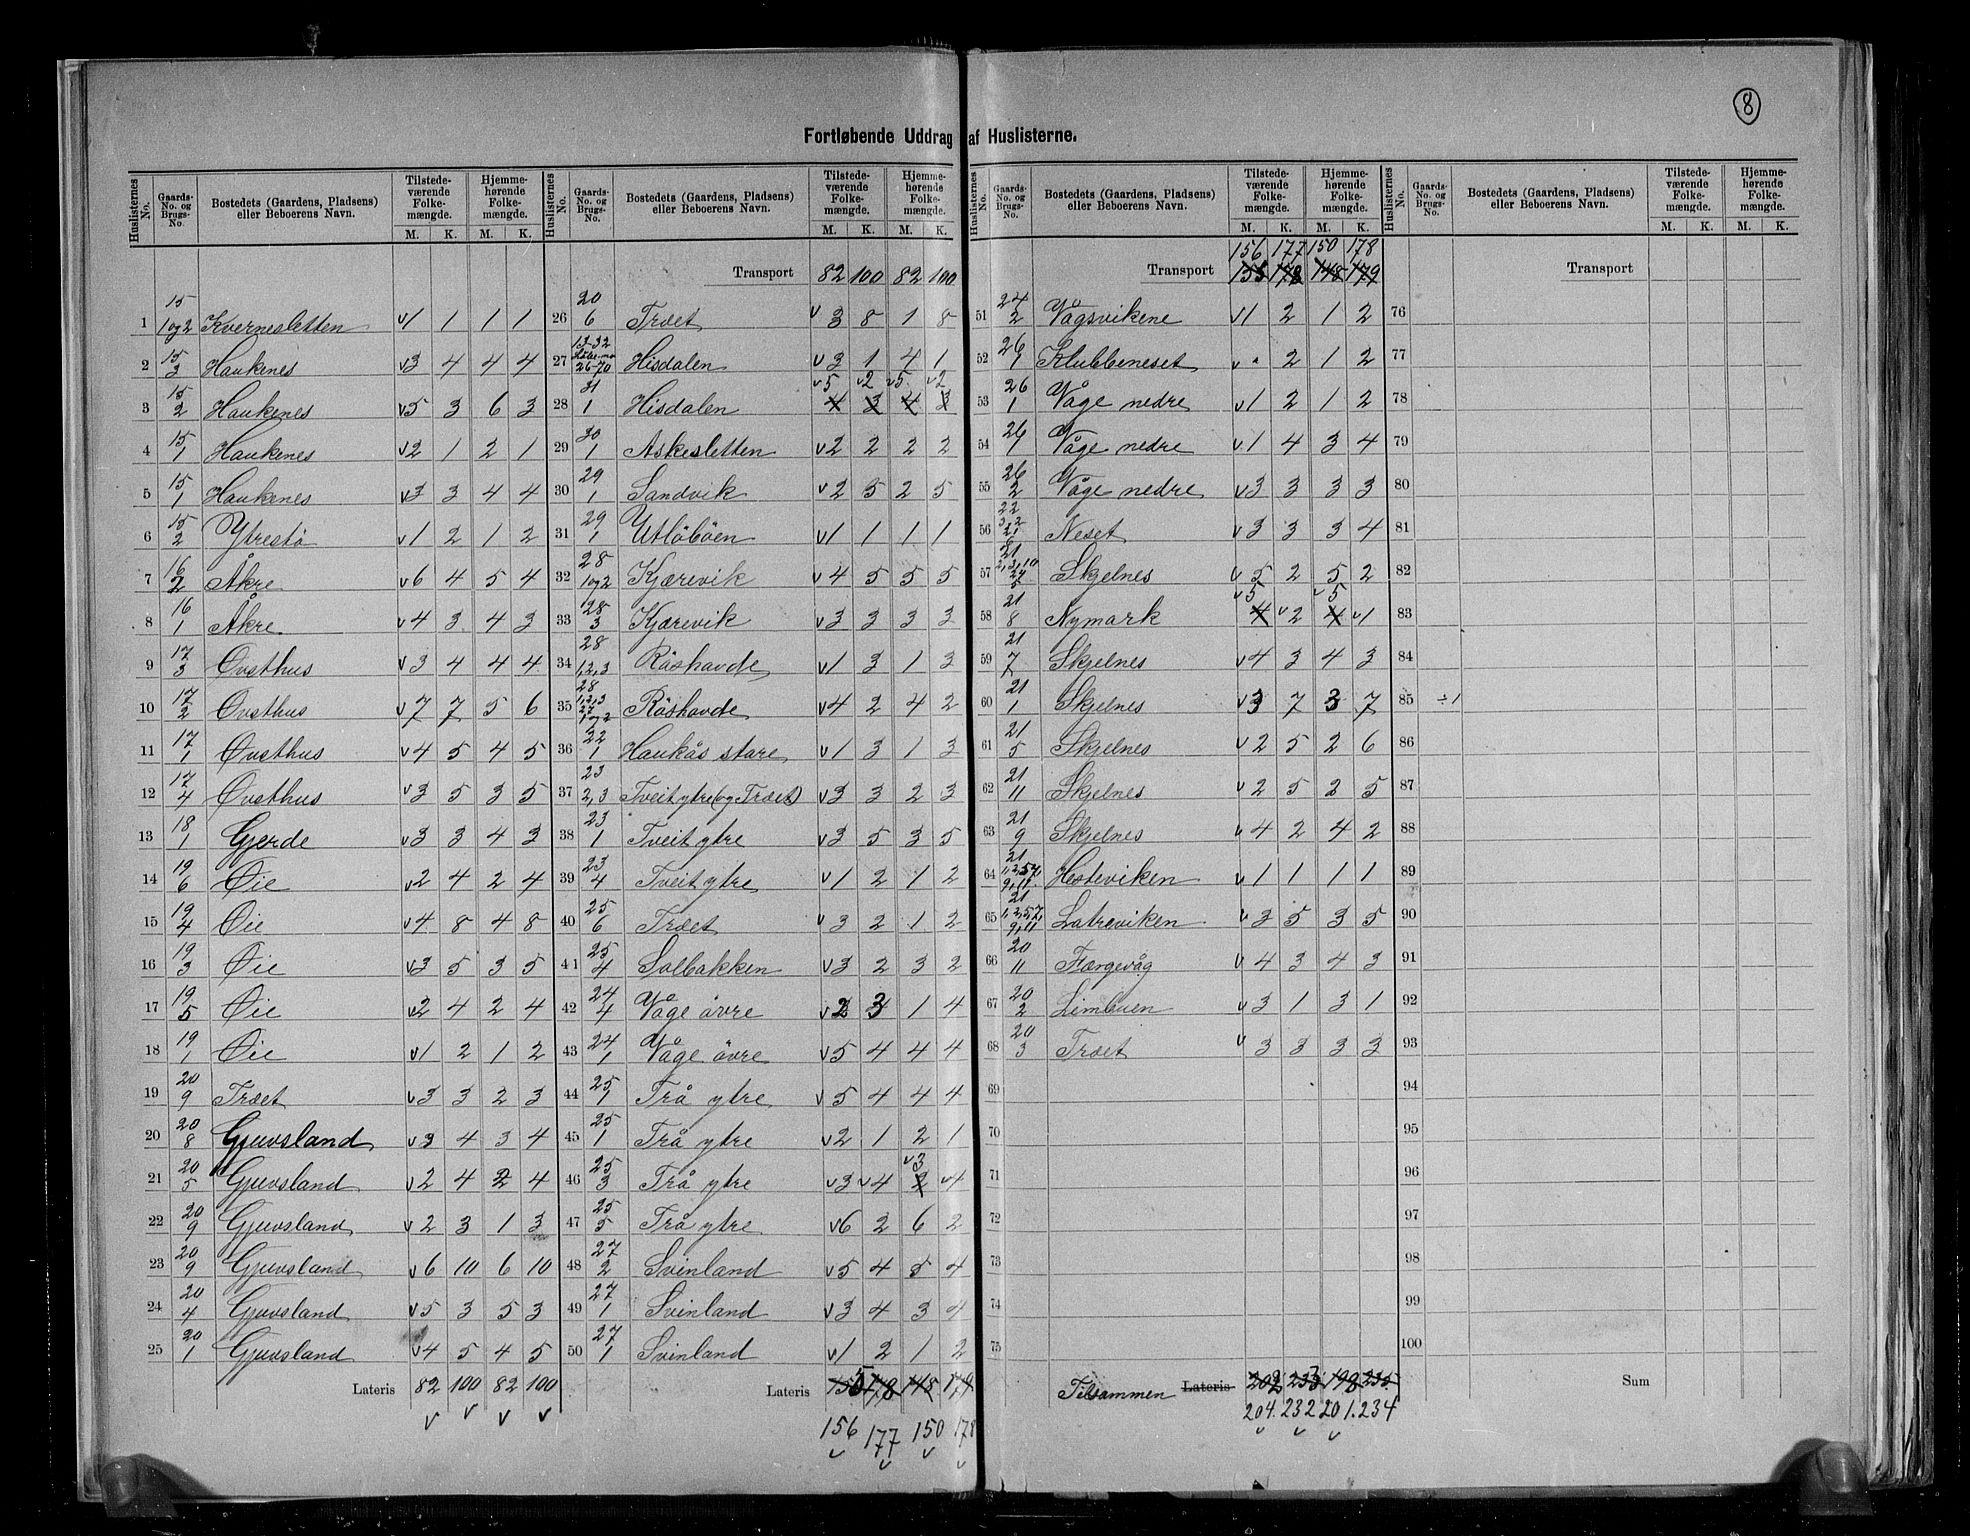 8
Fortløbende Uddrag af Huslisterne.
Huslisternes No. Gaards-No. og Brugs-No. Bostedets (Gaardens, Pladsens) eller Beboerens Navn. Tilstedeværende Folkemængde. M. K. Hjemmehørende Folkemængde. M. K.
1 15 1 og 2 Kvernesletten v1 1 1 1
2 15 3 Haukenes v3 4 4 4
3 15 2 Haukenes v5 3 6 3
4 15 1 Haukenes v2 1 2 1
5 15 1 Haukenes v3 3 4 4
6 15 2 Ytrestö v1 2 1 2
7 16 2 Åkre v6 4 5 4
8 16 1 Åkre v4 3 4 3
9 17 3 Øvsthus v3 4 4 4
10 17 2 Øvsthus v7 7 5 6
11 17 1 Øvsthus v4 5 4 5
12 17 4 Øvsthus v3 5 3 5
13 18 1 Gjerde v3 3 4 3
14 19 6 Øie v2 4 2 4
15 19 4 Øie v4 8 4 8
16 19 3 Øie v3 5 3 5
17 19 5 Øie v2 4 2 4
18 19 1 Øie v1 2 1 2
19 20 9 Træet v3 3 2 3
20 20 8 Gjuvsland v3 4 3 4
21 20 5 Gjuvsland v2 4 2 4
22 20 9 Gjuvsland v2 3 1 3
23 20 9 Gjuvsland v6 10 6 10
24 20 4 Gjuvsland v5 3 5 3
25 20 1 Gjuvsland v4 5 4 5
Lateris 82 100 82 100
v v v v
Huslisternes No. Gaards-No. og Brugs-No. Bostedets (Gaardens, Pladsens) eller Beboerens Navn. Tilstedeværende Folkemængde. M. K. Hjemmehørende Folkemængde. M. K.
Transport 82 100 82 100
26 20 6 Træet v 3 8 1 8
27 13-32 26-70 Hisdalen v3 1 4 1
v5 v2 v5 v2
28 31 1 Hisdalen 4 3 4 3
29 30 1 Askesletten v2 2 2 2
30 29 1 Sandvik v2 5 2 5
31 29 1 Utlöböen v1 1 1 1
32 28 1 og 2 Kjærevik v4 5 5 5
33 28 3 Kjærevik v3 3 3 3
34 28 1,2,3 Röshavde v1 3 1 3
35 28 1,2,3 27 1 og 2 Röshavde v4 2 4 2
36 22 1 Haukås store v1 3 1 3
37 23 2,3 Tveit ytre (og Træet) v3 3 2 3
38 23 1 Tveit ytre v3 5 3 5
39 23 4 Tveit ytre v1 2 1 2
40 25 6 Træet v3 2 1 2
41 25 4 Solbakken v3 2 3 2
42 24 4 Våge övre v2 3 1 4
43 24 1 Våge övre v5 4 4 4
44 25 1 Trå ytre v5 4 4 4
45 25 1 Trå ytre v2 1 2 1
v3
46 25 3 Trå ytre v3 v4 2 v4
47 25 5 Trå ytre v6 2 6 2
48 27 2 Svinland v5 4 5 4
49 27 1 Svinland v3 4 3 4
50 27 1 Svinland v1 2 1 2
Lateris 155 178 148 179
156 177 150 178
v v v v
Huslisternes No. Gaards-No. og Brugs-No. Bostedets (Gaardens, Pladsens) eller Beboerens Navn. Tilstedeværende Folkemængde. M. K. Hjemmehørende Folkemængde. M. K.
156 177 150 178
Transport 155 178 148 179
51 24 2 Vågsvikene v1 2 1 2
52 26 1 Klubbeneset v • 2 1 2
53 26 1 Våge nedre v1 2 1 2
54 26 1 Våge nedre v1 4 3 4
55 26 2 Våge nedre v3 3 3 3
56 22 3,2 21 Neset v3 3 3 4
57 21 Skjelnes v5 2 5 2
v5 v5
58 21 8 Nymark 4 v2 4 v1
59 21 7 Skjelnes v4 3 4 3
60 21 1 Skjelnes v3 7 3 7
61 21 5 Skjelnes v2 5 2 6
62 21 11 Skjelnes v2 5 2 5
63 21 9 Skjelnes v4 2 4 2
64 21 1,2,5,7, 9,11 Hesteviken v1 1 1 1
65 21 1,2,5,7, 9,11 Latreviken v3 5 3 5
66 20 11 Færgevåg v4 3 4 3
67 20 2 Limbuen v3 1 3 1
68 20 3 Træet v3 3 3 3
69
70
71
72
73
74
75
Tilsammen Lateris 202 233 198 235
204. 232 201. 234
v v v
Huslisternes No. Gaards-No. og Brugs-No. Bostedets (Gaardens, Pladsens) eller Beboerens Navn. Tilstedeværende Folkemængde. M. K. Hjemmehørende Folkemængde. M. K.
Transport
76
77
78
79
80
81
82
83
84
85 ÷1
86
87
88
89
90
91
92
93
94
95
96
97
98
99
100
Sum